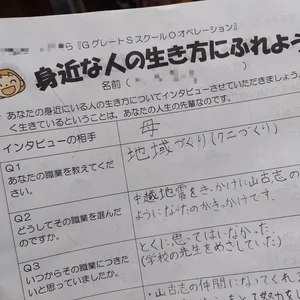 ら『GグレートSスクールOオペレーション』
身近な人の生き方にふれよう
名前(
あなたの身近にいる人の生き方についてインタビューさせていただきましょう。
く生きているということは、あなたの人生の先輩なのです。
インタビューの相手
母
Q1
あなたの職業を教えてくだ
さい。
地域づくり(クニづくり)
Q2
どうしてその職業を選んだ
のですか。
中越地震をきっかけに山古志の
ようになたのがきっかけです。
Q3
いつからその職業につきた
いと思っていましたか。
とくに思ってはいなかった。
(学校の先生をめざしていた)
・山古志の仲間になってくれる